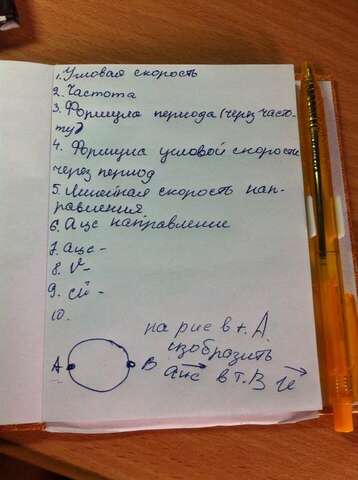 1. Угловая скорость
2. Частота
3. Формула периода (через часто-
ту)
4. Формула угловой скорости
через период
5. Линейная скорость нап-
равления
6. aцс направление
7. aцс -
8. V -
9. ой -
10.
на рис в т. А
изобразить
A B aцс в т. В V